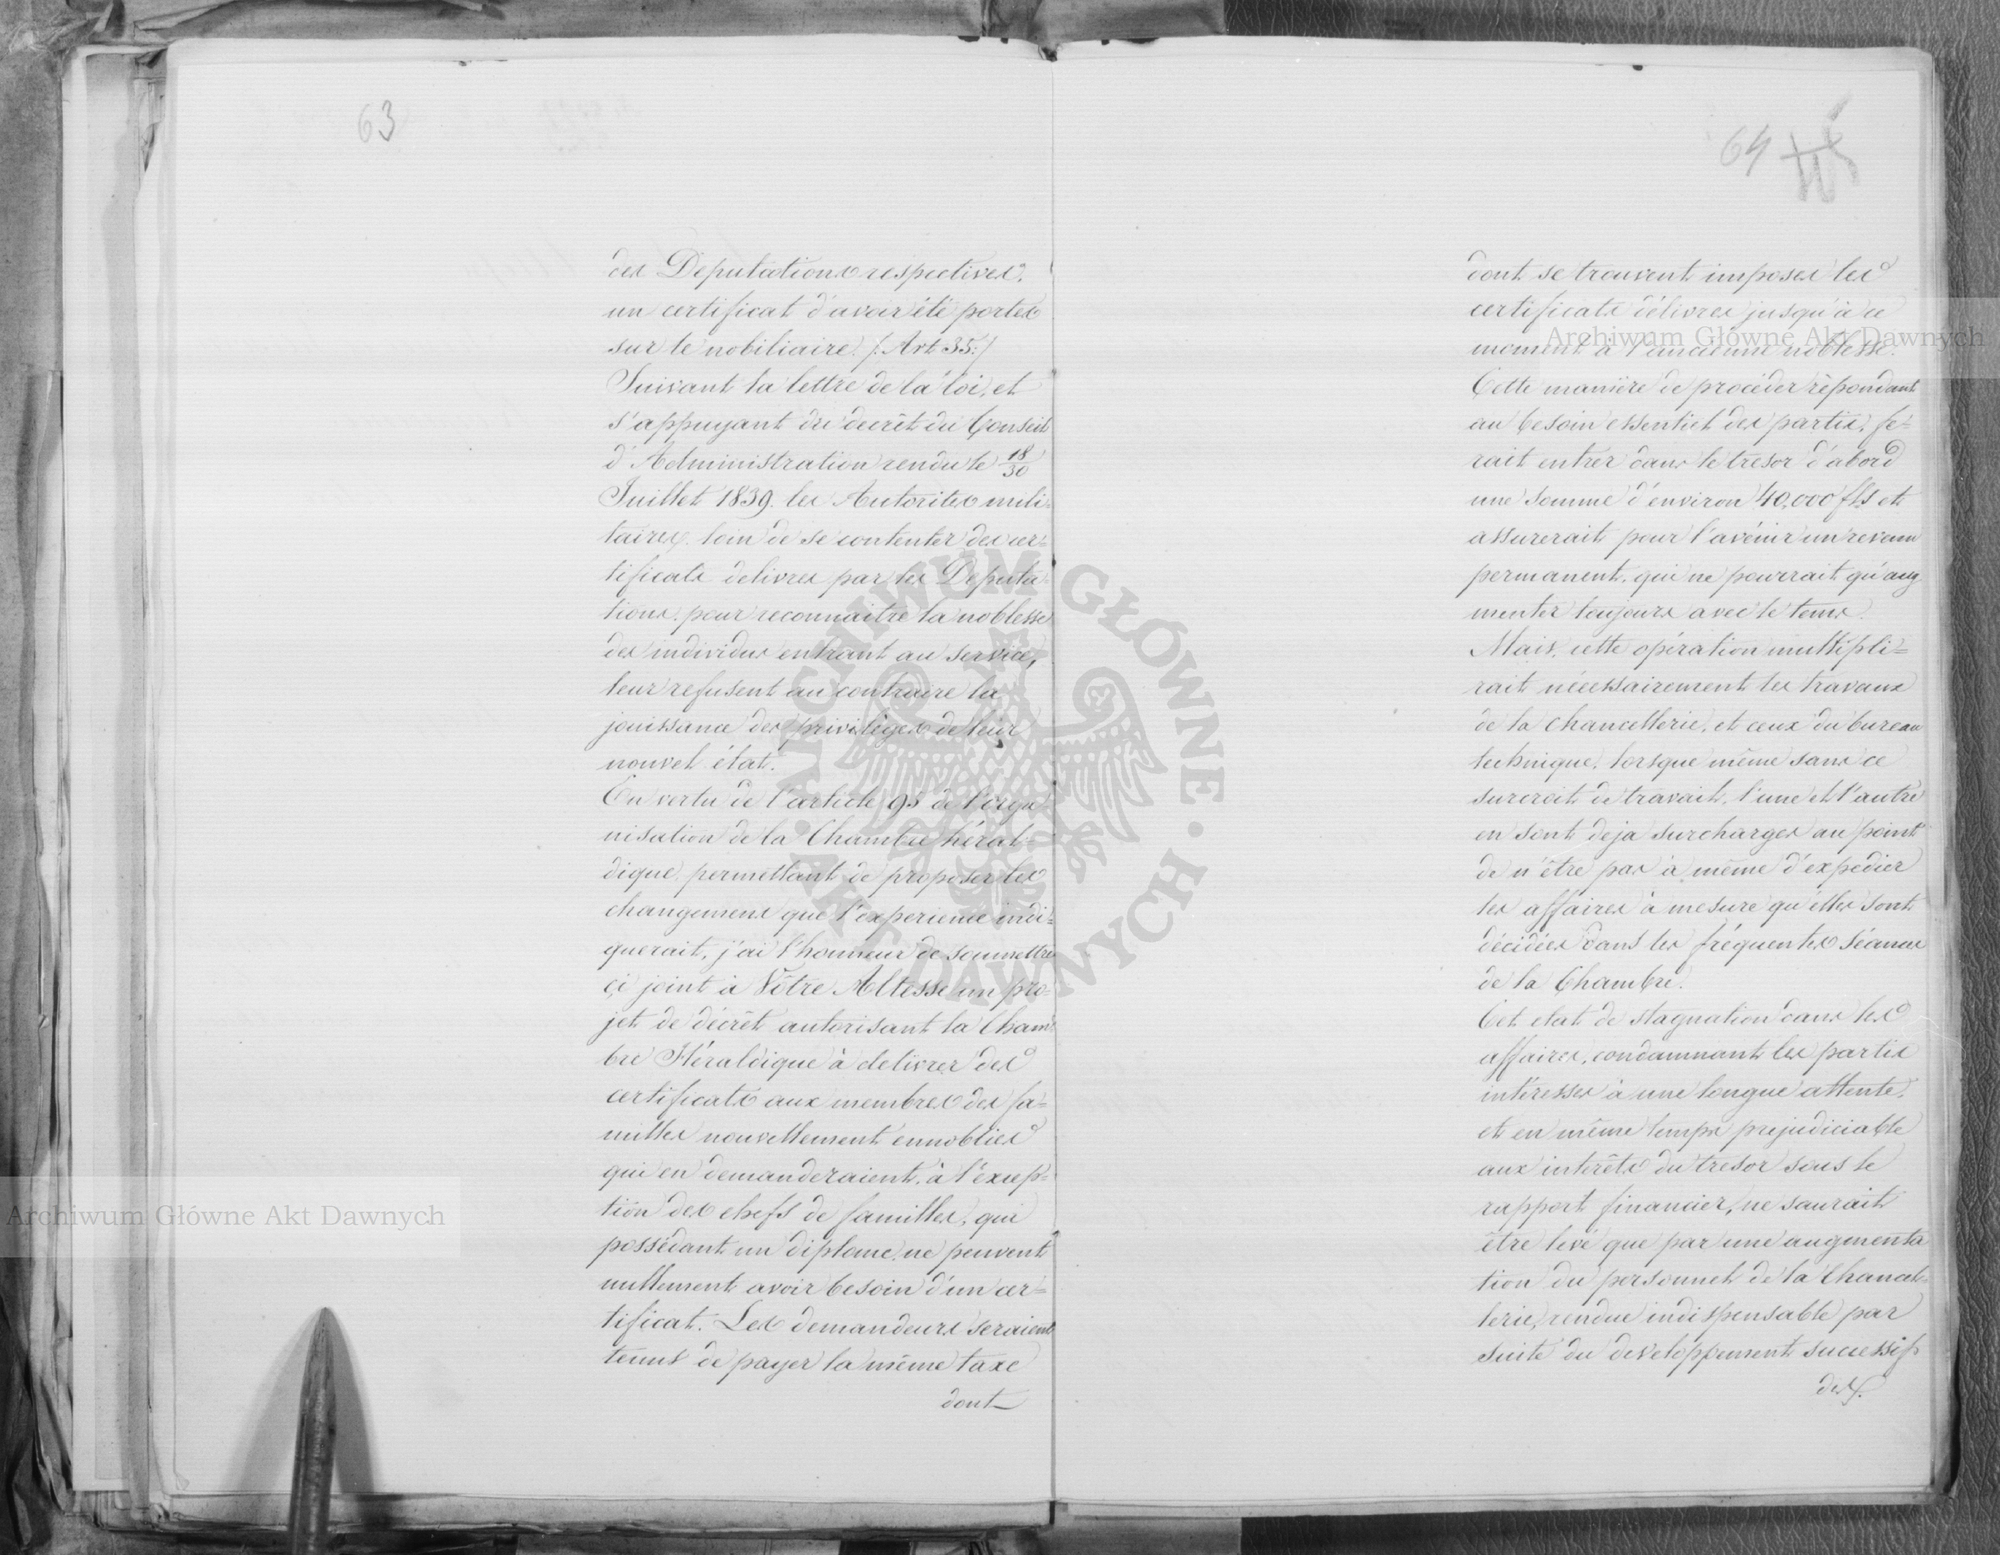 63
des Deputations respectives,
un certificat d'avoir été portés
sur le nobiliaire. /:Art 35:/
Suivant la lettre de la loi, et
s'appuyant du decrêt du Conseil
d'Administration rendu le 18/30
Juillet 1839. les Autorités mili-
taires, loin de se contenter des cer=
tificats delivrés par les Deputa-
tions, pour reconnaitre la noblesse
des individus entrant au service,
leur refusent au contraire la
jouissance des privilèges de leur
nouvel état.
En vertu de l'article 95 de l'orga-
nisation de la Chambre héral=
dique, permettant de proposer les
changemens que l'experience indi=
querait, j'ai l'honneur de soumettre
çi joint à Vôtre Altesse un pro-
jet de décrêt autorisant la Cham-
bre Héraldique à delivrer des
certificats aux membres des fa=
milles nouvellement ennoblies
qui en demanderaient, à l'excep=
tion des chefs de familles, qui
possédant un diplome, ne peuvent
nullement avoir besoin d'un cer=
tificat. Les demandeurs seraient
tenus de payer la même taxe
dont
64
dont se trouvent imposés les
certificats délivrés jusqu'à ce
moment à l'ancienne noblesse.
Cette manière de procéder répondant
au besoin essentiel des partis, fe=
rait entrer dans le tresor d'abord
une somme d'environ 40,000 fls et
assurerait pour l'avénir un revenu
permanent, qui ne pourrait qu'aug
menter toujours avec le tems.
Mais, cette opération multipli=
rait nécessairement les travaux
de la chancellerie, et ceux du bureau
technique, lorsque même sans ce
surcroit de travail, l'une et l'autre
en sont deja surchargés au point
de n'être pas à même d'expedier
les affaires à mesure qu'elles sont
décidées dans les fréquentes séances
de la Chambre.
Cet etat de stagnation dans les
affaires, condamnant les partis
intéressés à une longue attente,
et en même temps prejudiciable
aux interêts du tresor sous le
rapport financier, ne saurait
être levé que par une augmenta
tion du personnel de la Chancel-
lerie, rendue indispensable par
suite du developpement successif
des
Archiwum Główne Akt Dawnych
Archiwum Główne Akt Dawnych
ARCHIWUM GŁÓWNE AKT DAWNYCH